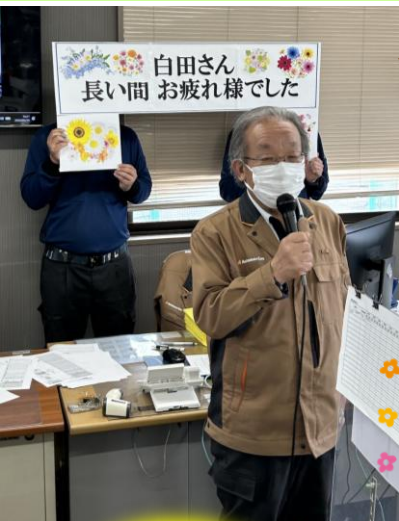 白田さん
長い間 お疲れ様でした